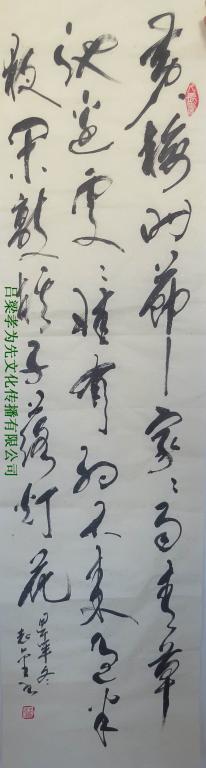 黄梅时节家家雨青草
池边处处蛙有约不来过半
夜闲敲棋子落灯花
甲午年冬
吕梁孝为先文化传播有限公司